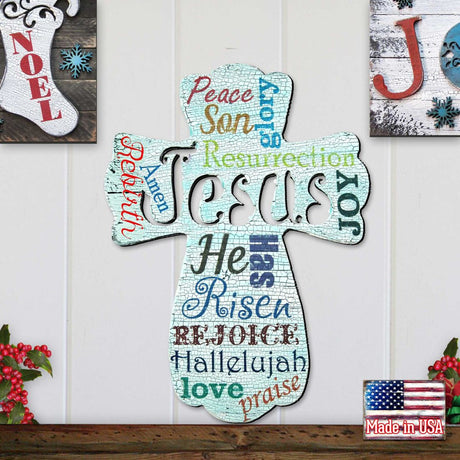 NOEL
JO
Peace
Son
glory
Resurrection
Rebirth
Amen
Jesus
JOY
He
Has
Risen
REJOICE
Hallelujah
love
praise
Made in USA